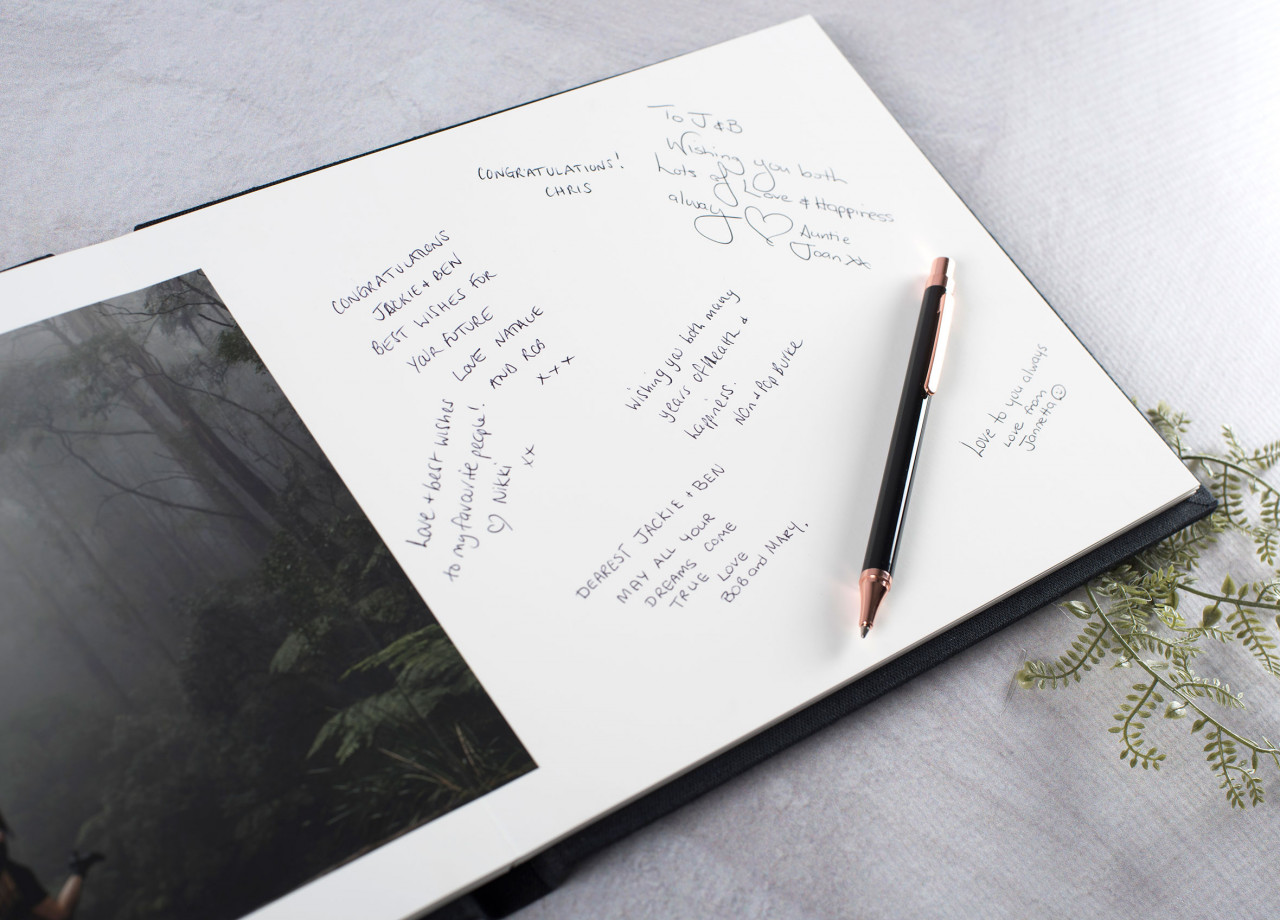 CONGRATULATIONS!
CHRIS
To J & B
Wishing you both
Lots of Love & Happiness
always
Auntie
Joan xx
CONGRATULATIONS
JACKIE + BEN
BEST WISHES FOR
YOUR FUTURE
LOVE NATALIE
AND ROB
x x x
Wishing you both many
years of Health &
happiness.
Nan + Pop Burke
Love to you always
Love from
Jannetta
Love + best wishes
to my favourite people!
♡ Nikki xx
DEAREST JACKIE + BEN
MAY ALL YOUR
DREAMS COME
TRUE LOVE
BOB and MARY.